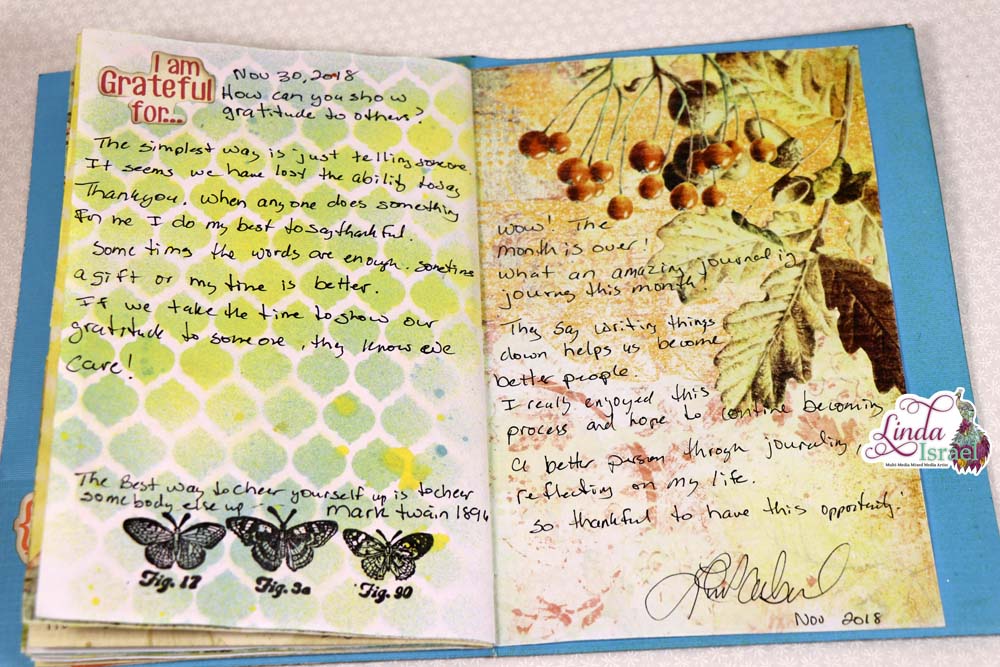 I am
Grateful
for...
Nov 30, 2018
How can you show
gratitude to others?
The simplest way is just telling someone.
It seems we have lost the ability today
Thankyou. When anyone does something
for me I do my best to say thankful.
some times the words are enough. sometimes
a gift or my time is better.
If we take the time to show our
gratitude to someone, they know we
care!
The Best way to cheer yourself up is to cheer
somebody else up - mark twain 1896
Fig. 17
Fig. 3a
Fig. 90
wow! The
month is over!
what an amazing journaling
journey this month!
They say writing things
down helps us become
better people.
I really enjoyed this
process and hope to continue becoming
a better person through journaling
reflecting on my life.
so thankful to have this opportunity!
Nov 2018
Linda
Israel
Multi-Media Mixed Media Artist